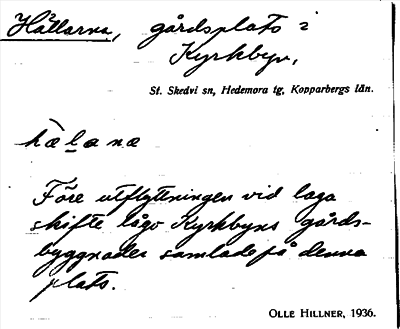 Hållarna, gårdsplats i
Kyrkbyn,
St. Skedvi sn, Hedemora tg, Kopparbergs län.
hὰlanæ
Före utflyttningen vid laga
skifte lågo Kyrkbyns gårds-
byggnader samlade på denna
plats.
OLLE HILLNER, 1936.